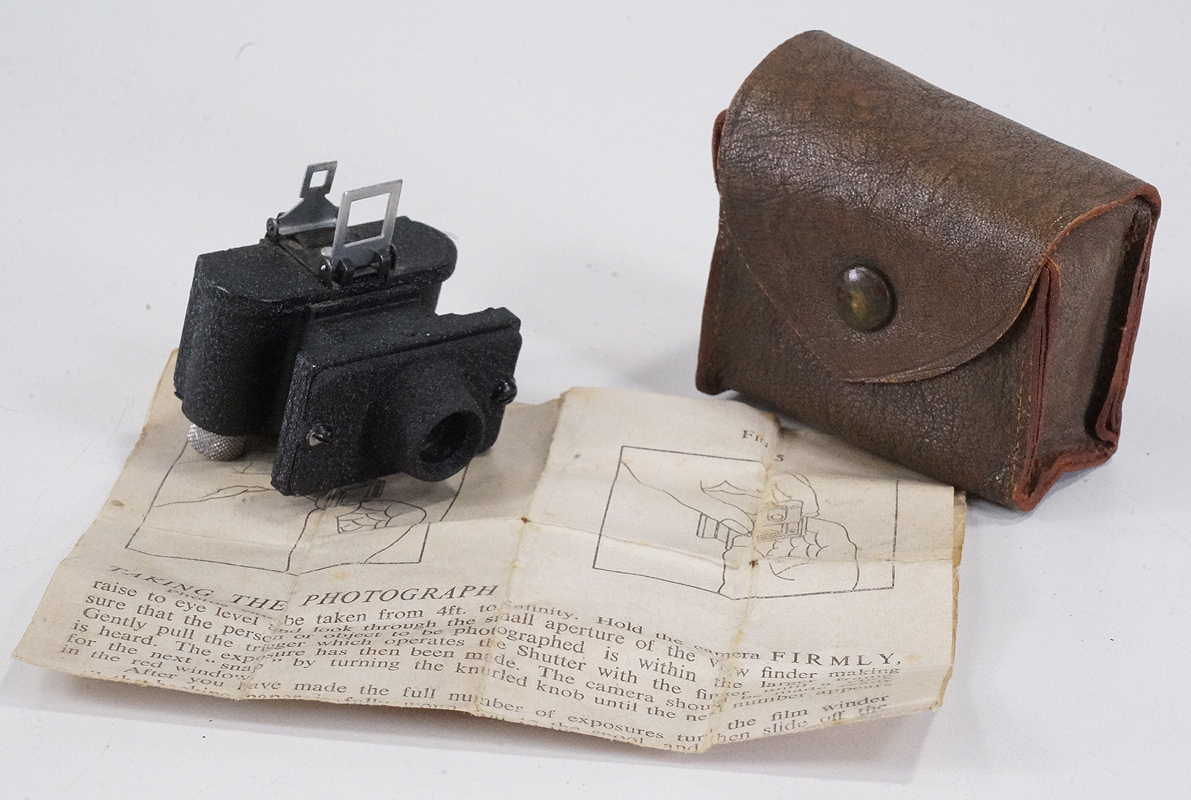 FIG. 5
TAKING THE PHOTOGRAPH
be taken from 4ft. to infinity. Hold the camera FIRMLY,
raise to eye level and look through the small aperture of the view finder making
sure that the person or object to be photographed is within the larger
Gently pull the trigger which operates the Shutter with the finger
is heard. The exposure has then been made. The camera should
for the next "snap" by turning the knurled knob until the next number appears
in the red window.
After you have made the full number of exposures turn the film winder
paper is fully to the spool and then slide off the